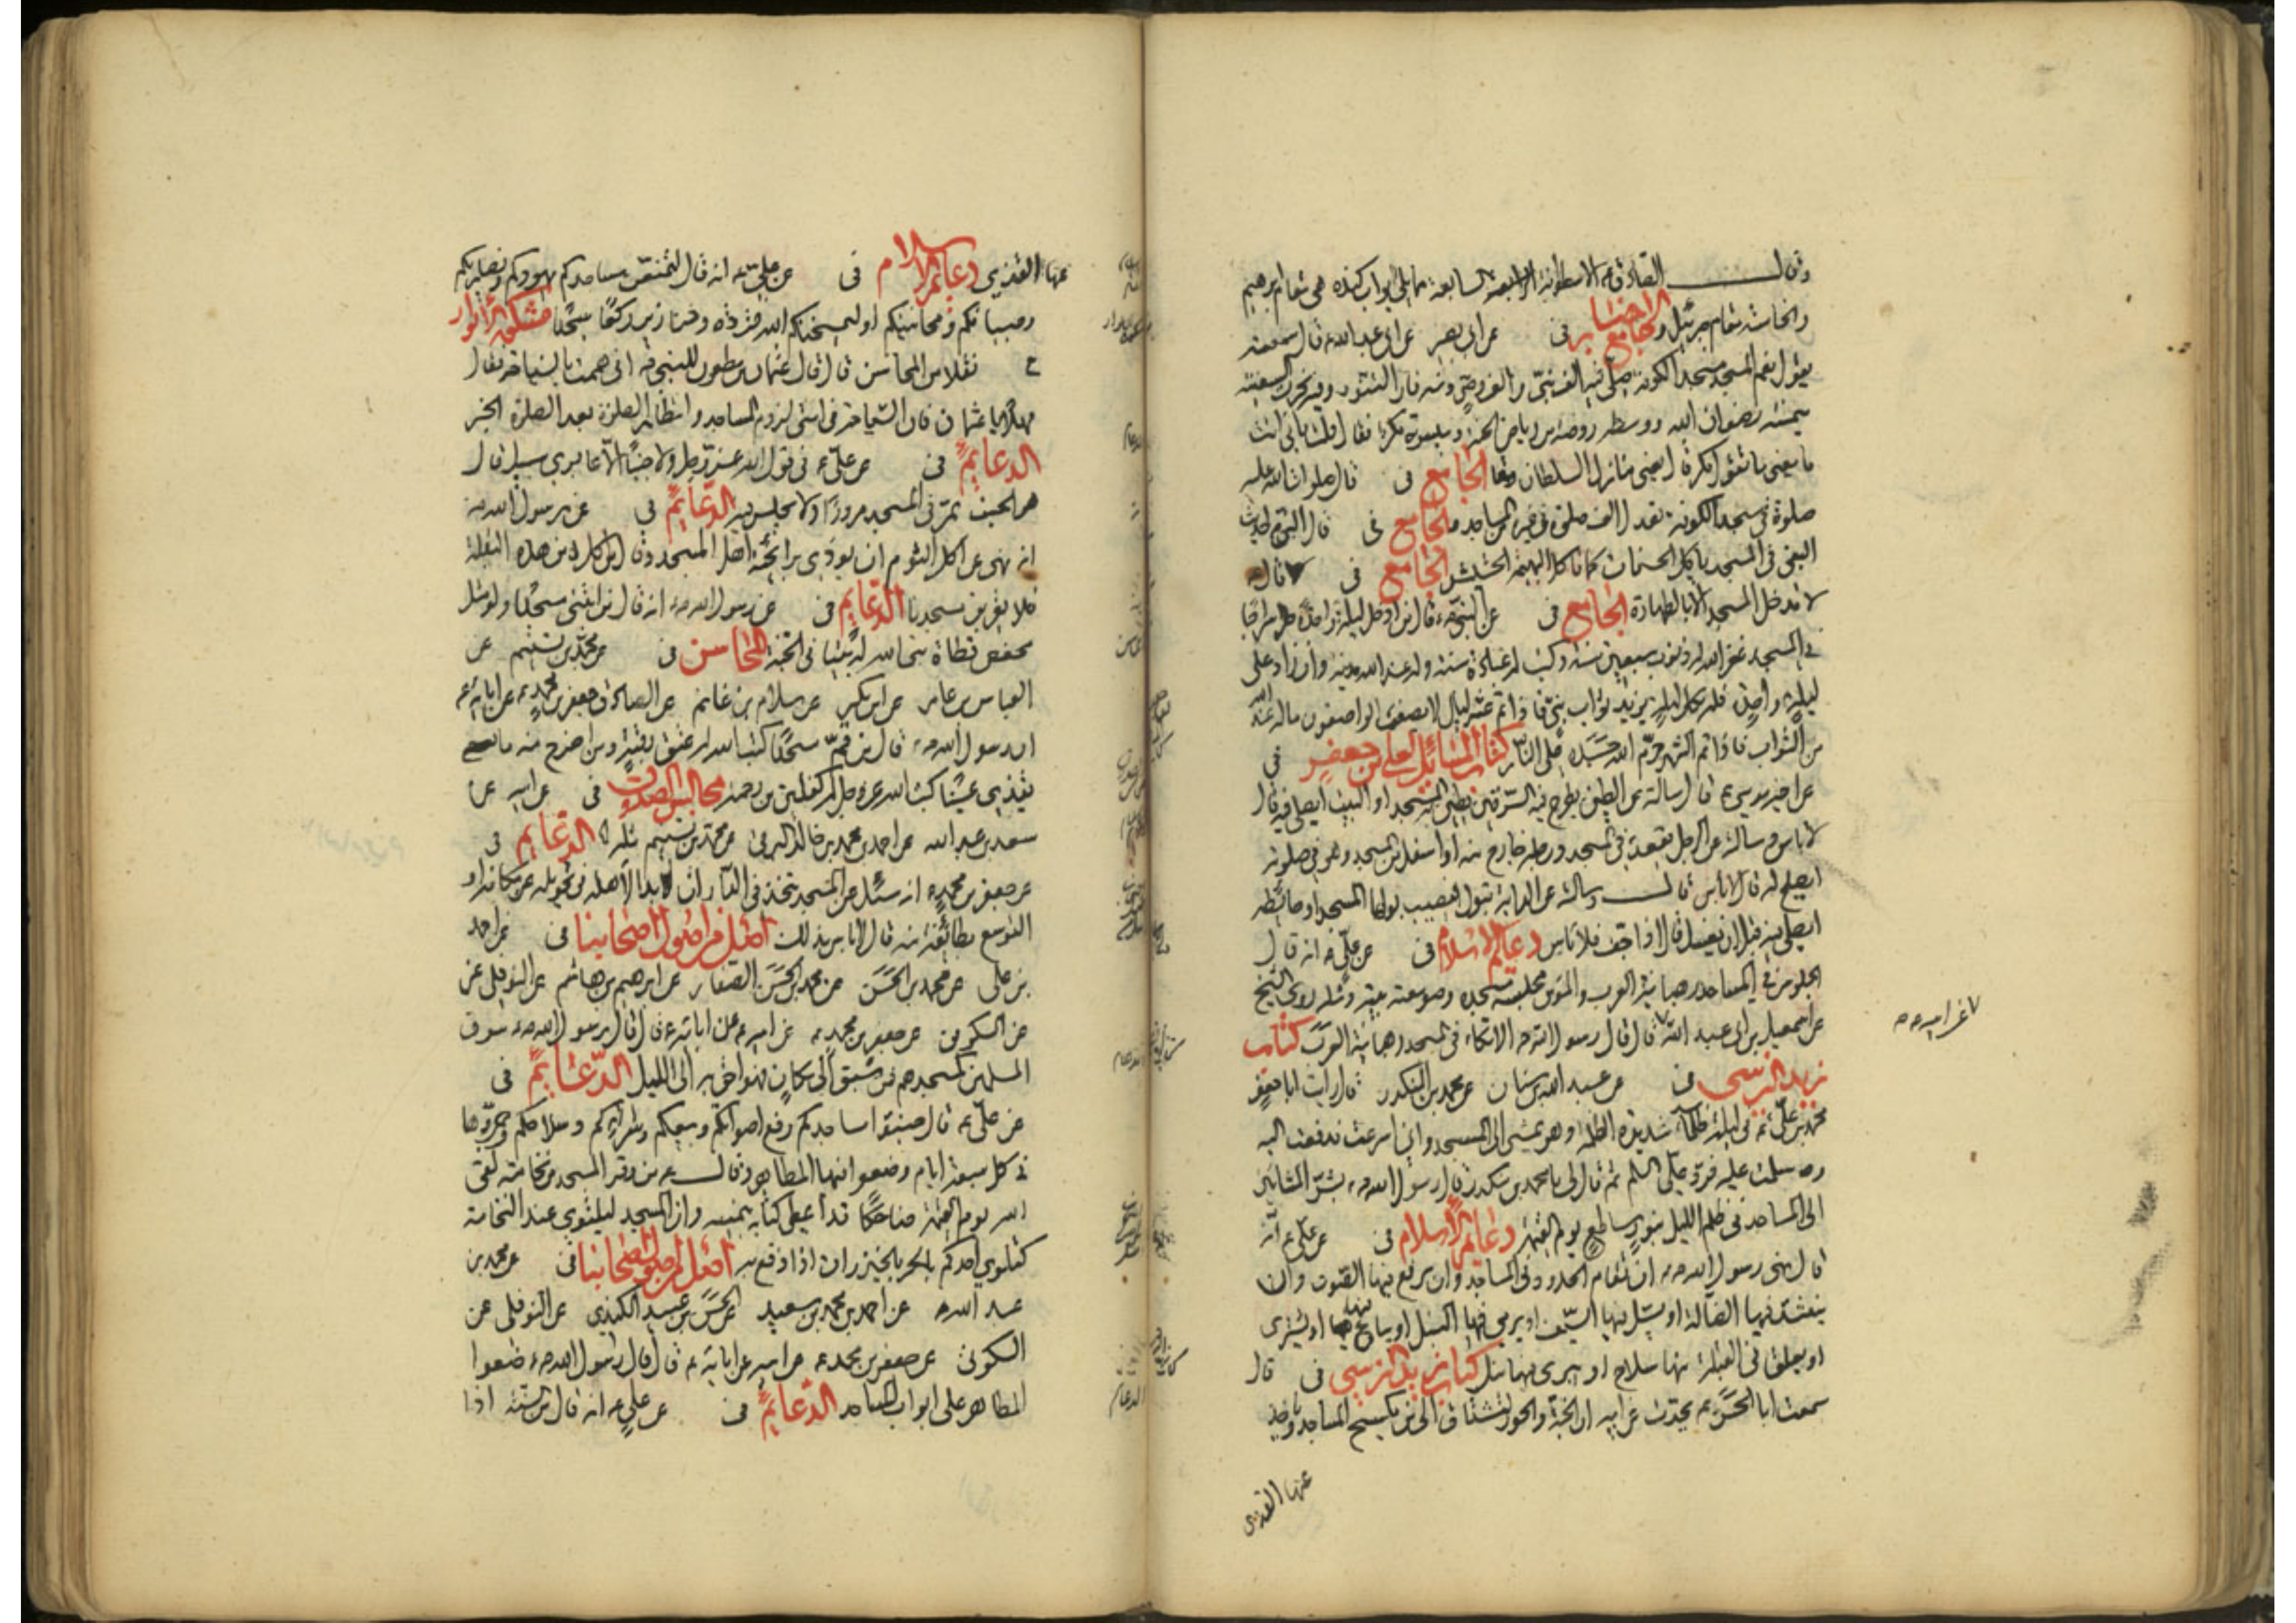 وقال الصادق ع الاسطوانة السابعة مما يلي ابواب كنده هي مقام ابرهيم
والخامسة مقام جبرئيل و جامع الاخبار في عن ابي بصير عن ابي عبد الله ع قال سمعته
يقول نعم المسجد مسجد الكوفة صلى فيه الف نبي والف وصي ومنه فار التنور وفيه نجرت السفينة
ميمنته رضوان الله ووسطه روضة من رياض الجنة وميسرته مكر فقال قلت بابي انت
ما يعني بما تقول مكر قال يعني منازل السلطان الجامع في قال صلوات الله عليه
صلوة في مسجد الكوفة تعدل الف صلوة في غيره من المساجد الجامع في قال النبي ص الحديث
البغي في المسجد ياكل الحسنات كما تاكل البهيمة الحشيش الجامع في قال
لا تدخل المسجد الا بالطهارة الجامع في عن النبي ص قال من ادخل ليلة واحدة سراجا
في المسجد غفر الله له ذنوب سبعين سنة وكتب له عبادة سنة وله عند الله مدينة وان زاد على
ليلة واحدة فله بكل ليلة يزيد ثواب نبي فاذا تم عشر ليال لا يصف الواصفون ماله عند الله
من الثواب فاذا تم الشهر حرم الله جسده على النار كتاب المسائل لعلي بن جعفر في
عن اخيه موسى ع قال سالته عن الطين يطرح فيه السرقين يطين به المسجد او البيت ايصلى فيه قال
لا باس وسالته عن الرجل يقعد في المسجد ورجله خارج منه او اسفل من المسجد وهو في صلوته
ايصلح له قال لا باس قال وسالته عن الدابة تبول فيصيب بولها المسجد او حائطه
ايصلى فيه قبل ان يغسل قال اذا جف فلا باس دعائم الاسلام في عن علي ع انه قال
الجلوس في المساجد رهبانية العرب والمؤمن مجلسه مسجده وصومعته بيته
عن اسمعيل بن ابي عبد الله قال قال رسول الله ص الاتكاء في المسجد رهبانية العرب كتاب
زيد النرسي في عن عبد الله بن سنان عن محمد بن المنكدر قال رايت ابا جعفر
محمد بن علي ع في ليلة ظلماء شديدة الظلمة وهو يمشي الى المسجد واني اسرعت فدفعت اليه
وسلمت عليه فرد علي السلم ثم قال لي يا محمد بن منكدر قال رسول الله ص بشر المشائين
الى المساجد في ظلم الليل بنور ساطع يوم القيمة دعائم الاسلام في عن علي ع انه
قال نهى رسول الله ص ان تقام الحدود في المساجد وان يرفع فيها الصوت وان
ينشد فيها الضالة او يسل فيها السيف او يرمى فيها النبل او يباع فيها او يشترى
او يعلق في القبلة منها سلاح او يبرى فيها نبل كتاب زيد النرسي في قال
سمعت ابا الحسن ع يحدث عن ابيه ان الجنة والحور لتشتاق الى من يكسح المساجد وياخذ
عنها القذى
عن ابيه ع
عنها القذى دعائم الاسلام في عن علي ع انه قال لتمنعن مساجدكم يهودكم ونصاريكم
وصبيانكم ومجانينكم او ليمسخنكم الله قردة وخنازير ركعا سجدا مشكوة الانوار
نقلا من المحاسن قال قال عثمان بن مظعون للنبي ص اني هممت بالسياحة فقال
مهلا يا عثمان فان السياحة في امتي لزوم المساجد وانتظار الصلوة بعد الصلوة الخبر
الدعائم في عن علي ع في قول الله عز وجل ولا جنبا الا عابري سبيل قال
هو الجنب يمر في المسجد مرورا ولا يجلس فيه الدعائم في عن رسول الله ص
انه نهى عن اكل الثوم ان يوذى برائحته اهل المسجد وقال من اكل من هذه البقلة
فلا يقربن مسجدنا الدعائم في عن رسول الله ص انه قال من ابتنى مسجدا ولو مثل
مفحص قطاة بنى الله له بيتا في الجنة المحاسن في عن محمد بن تسنيم عن
العباس بن عامر عن ابن بكير عن سلام بن غانم عن الصادق جعفر بن محمد ع عن ابائه ع
ان رسول الله ص قال من قم مسجدا كتب الله له عتق رقبة ومن اخرج منه ما
يقذي عينا كتب الله عز وجل له كفلين من رحمته مجالس الصدوق في عن ابيه عن
سعد بن عبد الله عن احمد بن محمد بن خالد البرقي عن محمد بن تسنيم مثله الدعائم في
عن جعفر بن محمد ع انه سئل عن المسجد يتخذ في الدار ان بدا لاهله في تحويله عن مكانه او
التوسع بطائفة منه قال لا باس بذلك اصل من اصول اصحابنا في عن احمد
بن علي عن محمد بن الحسن عن محمد بن الحسن الصفار عن ابرهيم بن هاشم عن النوفلي عن
عن السكوني عن جعفر بن محمد ع عن ابيه ع عن ابائه ع قال قال رسول الله ص سوق
المسلمين كمسجدهم فمن سبق الى مكان فهو احق به الى الليل الدعائم في
عن علي ع قال جنبوا مساجدكم رفع اصواتكم وبيعكم وشراءكم وسلاحكم وجمروها
في كل سبعة ايام وضعوا فيها المطاهر وقال ع من وقر المسجد من نخامته لقي
الله يوم القيمة ضاحكا قد اعطي كتابه بيمينه وان المسجد ليلتوي عند النخامة
كما يلتوي احدكم بالخيزران اذا وقع به اصل من اصول اصحابنا في عن محمد بن
عبد الله عن احمد بن محمد بن سعيد عن الحسن بن عبيد الكندي عن النوفلي عن
السكوني عن جعفر بن محمد ع عن ابيه عن ابائه ع قال قال رسول الله ص ضعوا
المطاهر على ابواب المساجد الدعائم في عن علي ع انه قال من السنة اذا